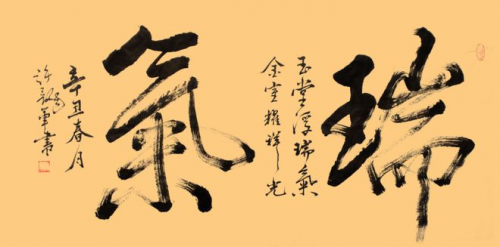 瑞
玉堂浮瑞氣
金室耀祥光
氣
辛丑春月
许軍書